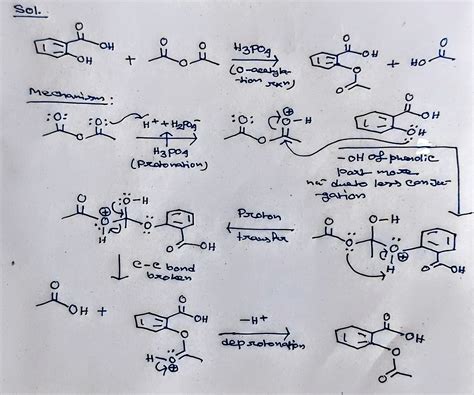 Sol.
O
OH
OH
+
O O
O
H3PO4
(O-acetyla-
tion rxn)
O
OH
O
O
+
O
HO
Mechanism :
:O: :O:
O
H+ + H2PO4-
H3PO4
(Protonation)
:O: ⊕
O-H
O
O
OH
:OH
-OH of phenolic
part more
nu- due to less conju-
gation
O
O-H
O
⊕
H
O
O
OH
Proton
transfer
O
O-H
O
O
H
⊕
O
OH
C-O bond
broken
O
OH
+
O
OH
O
H-O
⊕
-H+
deprotonation
O
OH
O
O